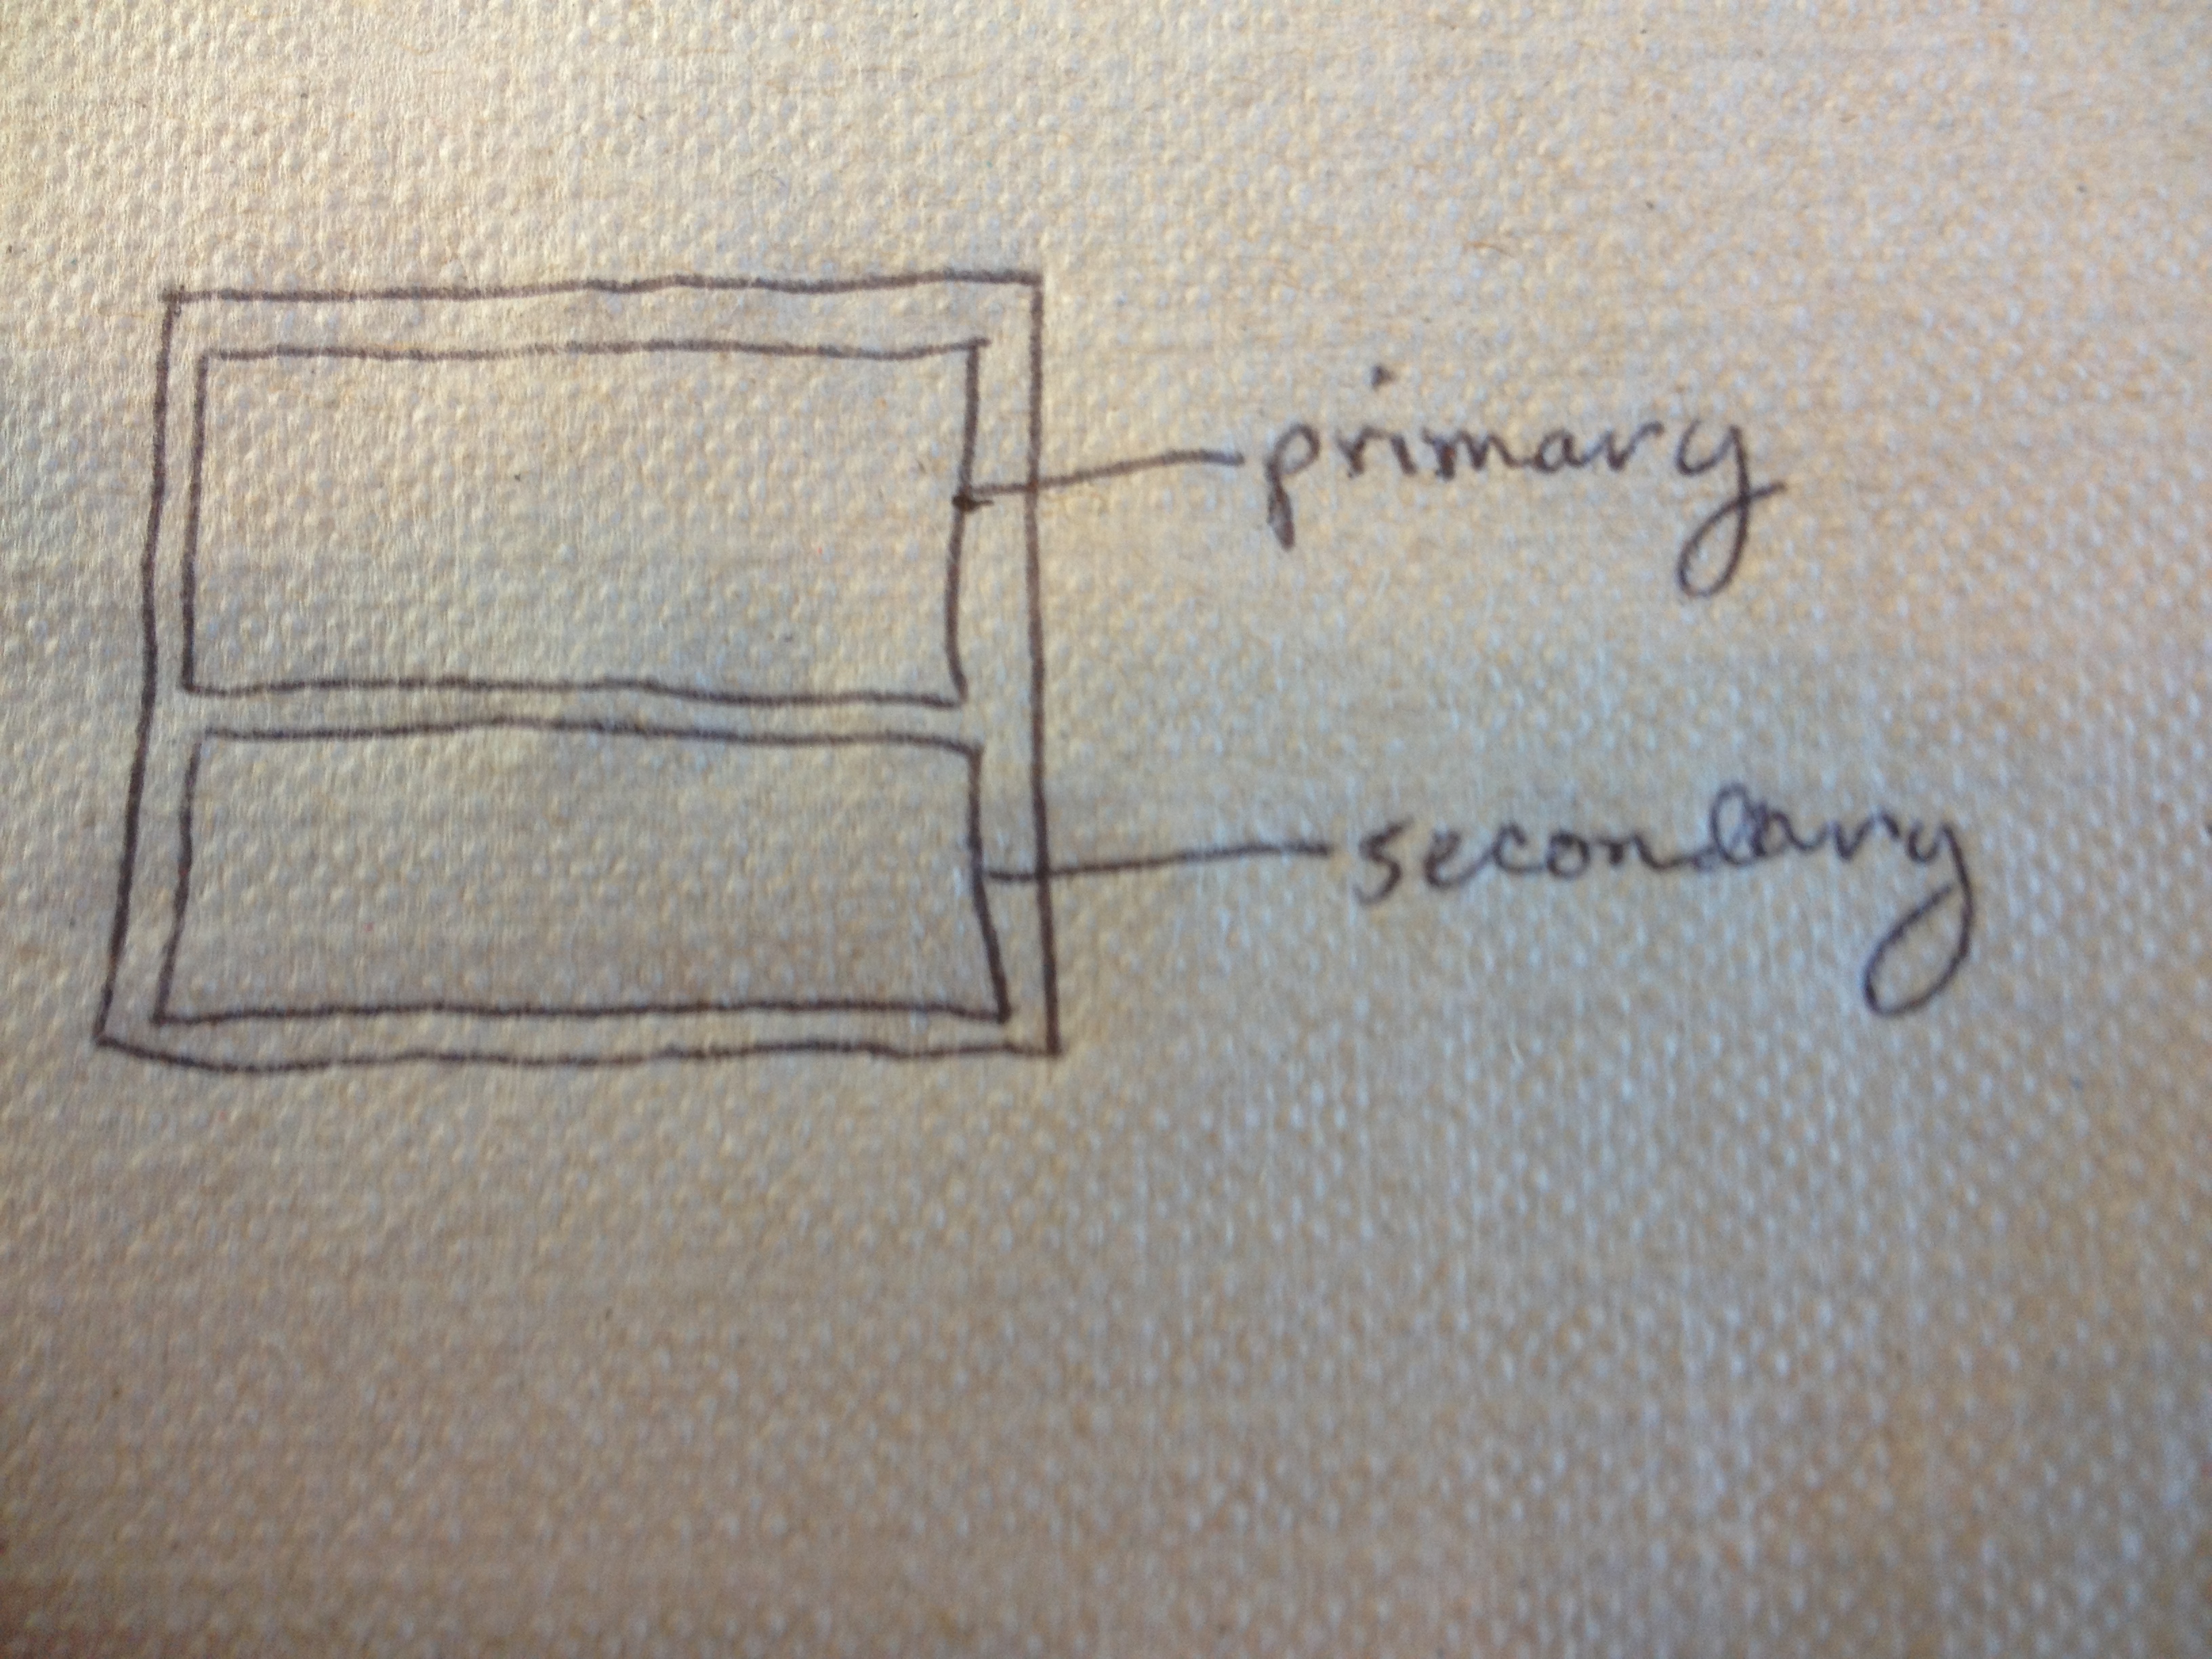 primary
secondary